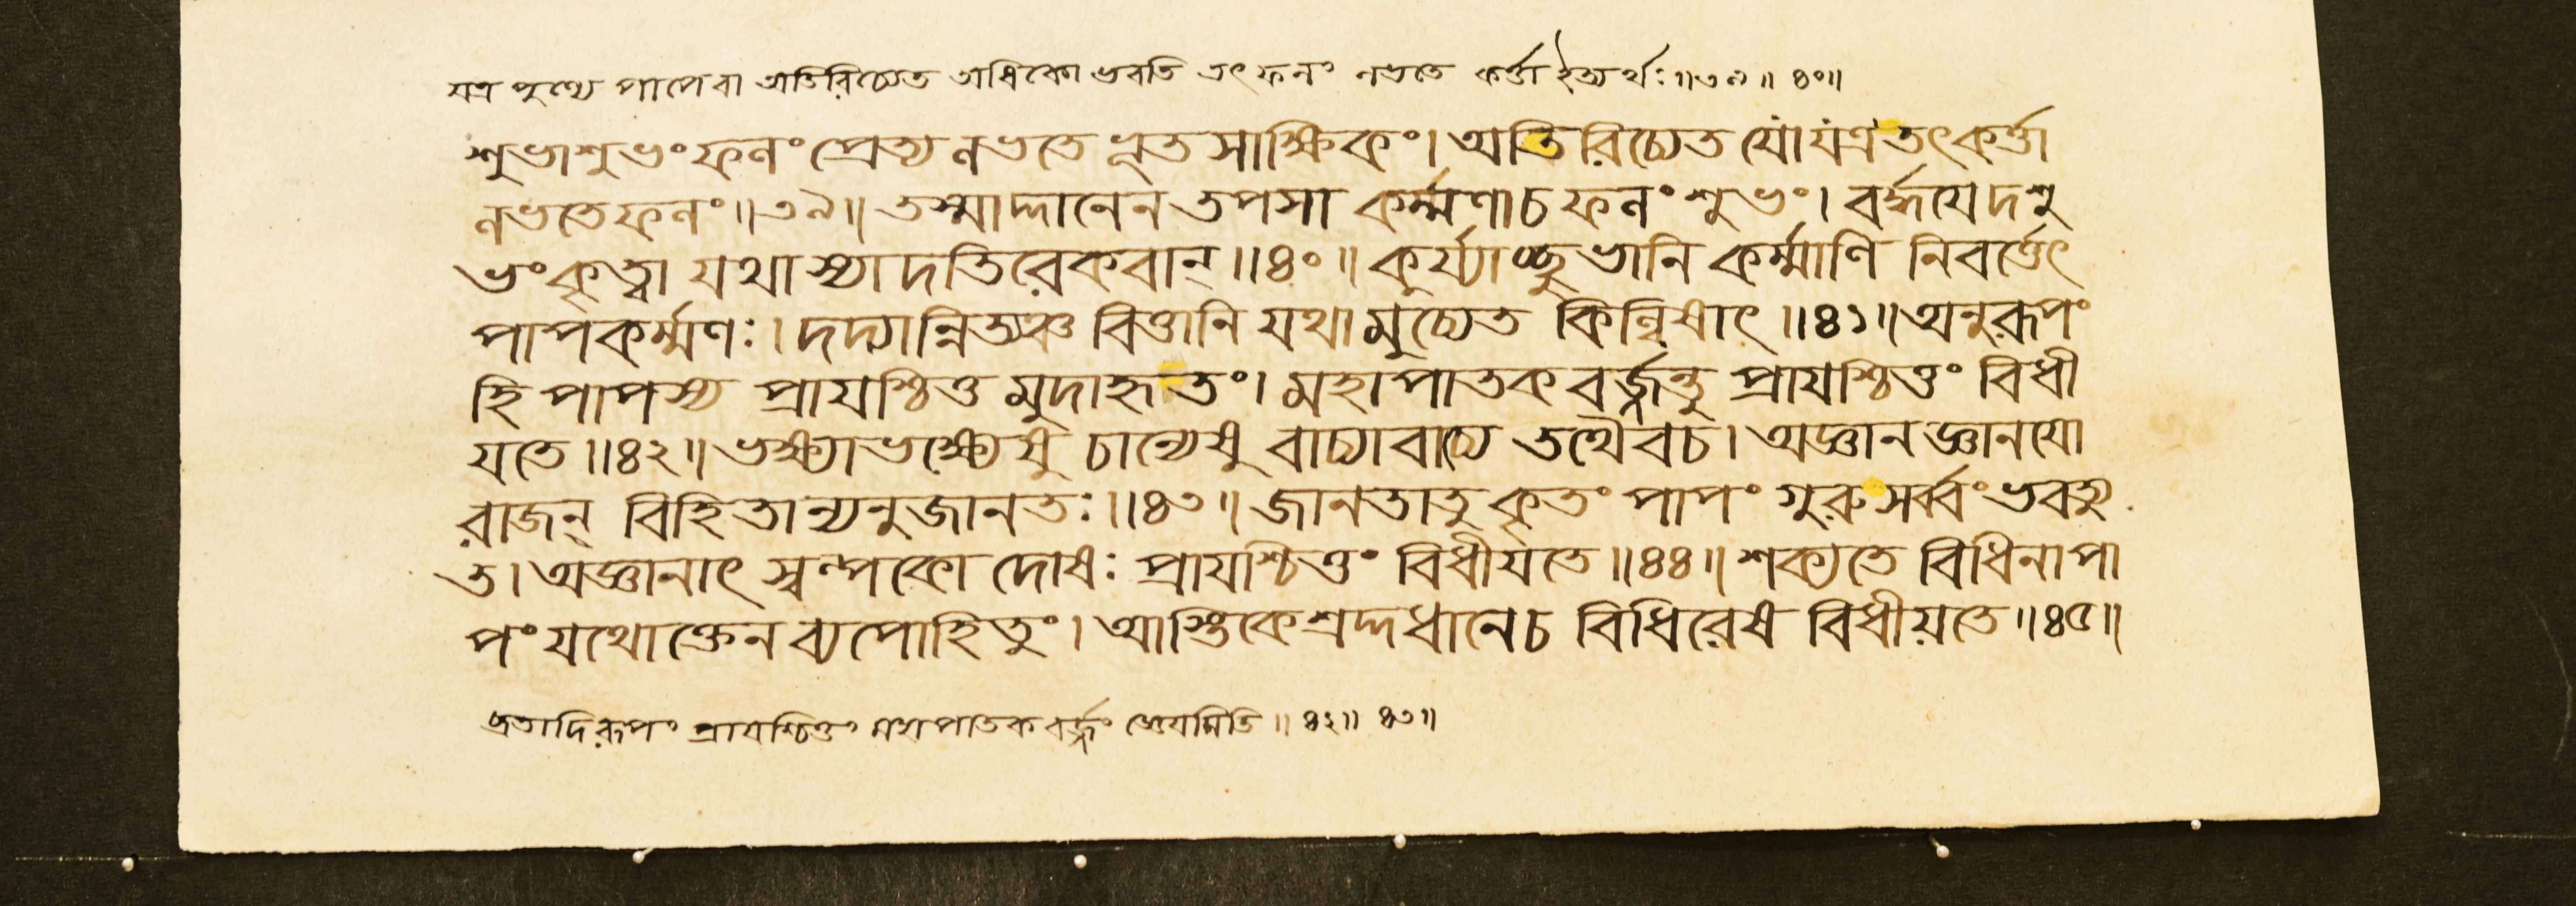 যত্র পুণ্যে পাপে বা অতিরিচ্যেত অধিকো ভবতি তৎ ফলং লভতে কর্ত্তা ইত্যর্থঃ ॥৩৯॥ ৪০॥
শুভাশুভং ফলং প্রেত্য লভতে ভূত সাক্ষিকং। অতিরিচ্যেত যো যত্র তৎ কর্ত্তা
লভতে ফলং ॥৩৯॥ তস্মাদ্দানেন তপসা কর্ম্মণা চ ফলং শুভং। বর্দ্ধযেদশু
ভং কৃত্বা যথা স্যাদতিরেকবান্ ॥৪০॥ কুর্য্যাচ্ছুভানি কর্ম্মাণি নিবর্ত্তেৎ
পাপকর্ম্মণঃ। দদ্যান্নিত্যঞ্চ বিত্তানি যথা মুচ্যেত কিল্বিষাৎ ॥৪১॥ অনুরূপং
হি পাপস্য প্রাযশ্চিত্ত মুদাহৃতং। মহাপাতক বর্জ্জন্তু প্রাযশ্চিত্তং বিধী
যতে ॥৪২॥ ভক্ষ্যাভক্ষ্যেষু চান্যেষু বাচ্যাবাচ্যে তথৈবচ। অজ্ঞান জ্ঞানযো
রাজন্ বিহিতান্যনুজানতঃ ॥৪৩॥ জানতাতু কৃতং পাপং গুরু সর্ব্বং ভবত্যু
ত। অজ্ঞানাৎ স্বল্পকো দোষঃ প্রাযশ্চিত্তং বিধীযতে ॥৪৪॥ শক্যতে বিধিনা পা
পং যথোক্তেন ব্যপোহিতুং। আস্তিকে শ্রদ্দধানেচ বিধিরেষ বিধীয়তে ॥৪৫॥
ব্রতাদিরূপং প্রাযশ্চিত্তং মহাপাতক বর্জ্জং জ্ঞেযমিতি ॥ ৪২॥ ৪৩॥